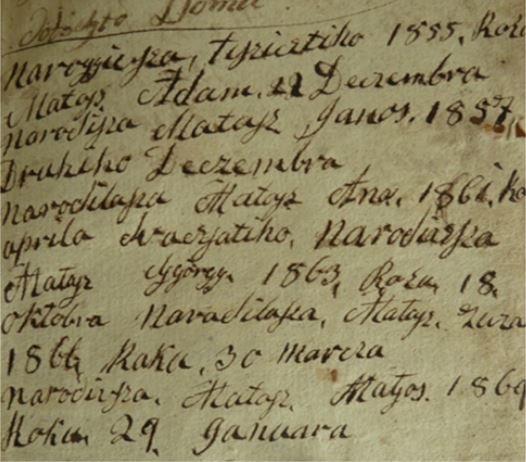 Domu
Narodzijsza, tiszicztiho 1855, Roku
Matajz Adam. 22 Deczembra
narodijza Matajz Janos. 1857,
Druhiho Deczembra
narodilasza Matajz Ana, 1861, Ro
aprila dvaczjatiho, Narodzijsza
Matajz György. 1863, Roku, 18.
oktobra Narodilasza, Matajz. Zuza
1866, Roku, 30 marcza
narodzijsza. Matajz. Matjos. 1869
Roku. 29. Januara